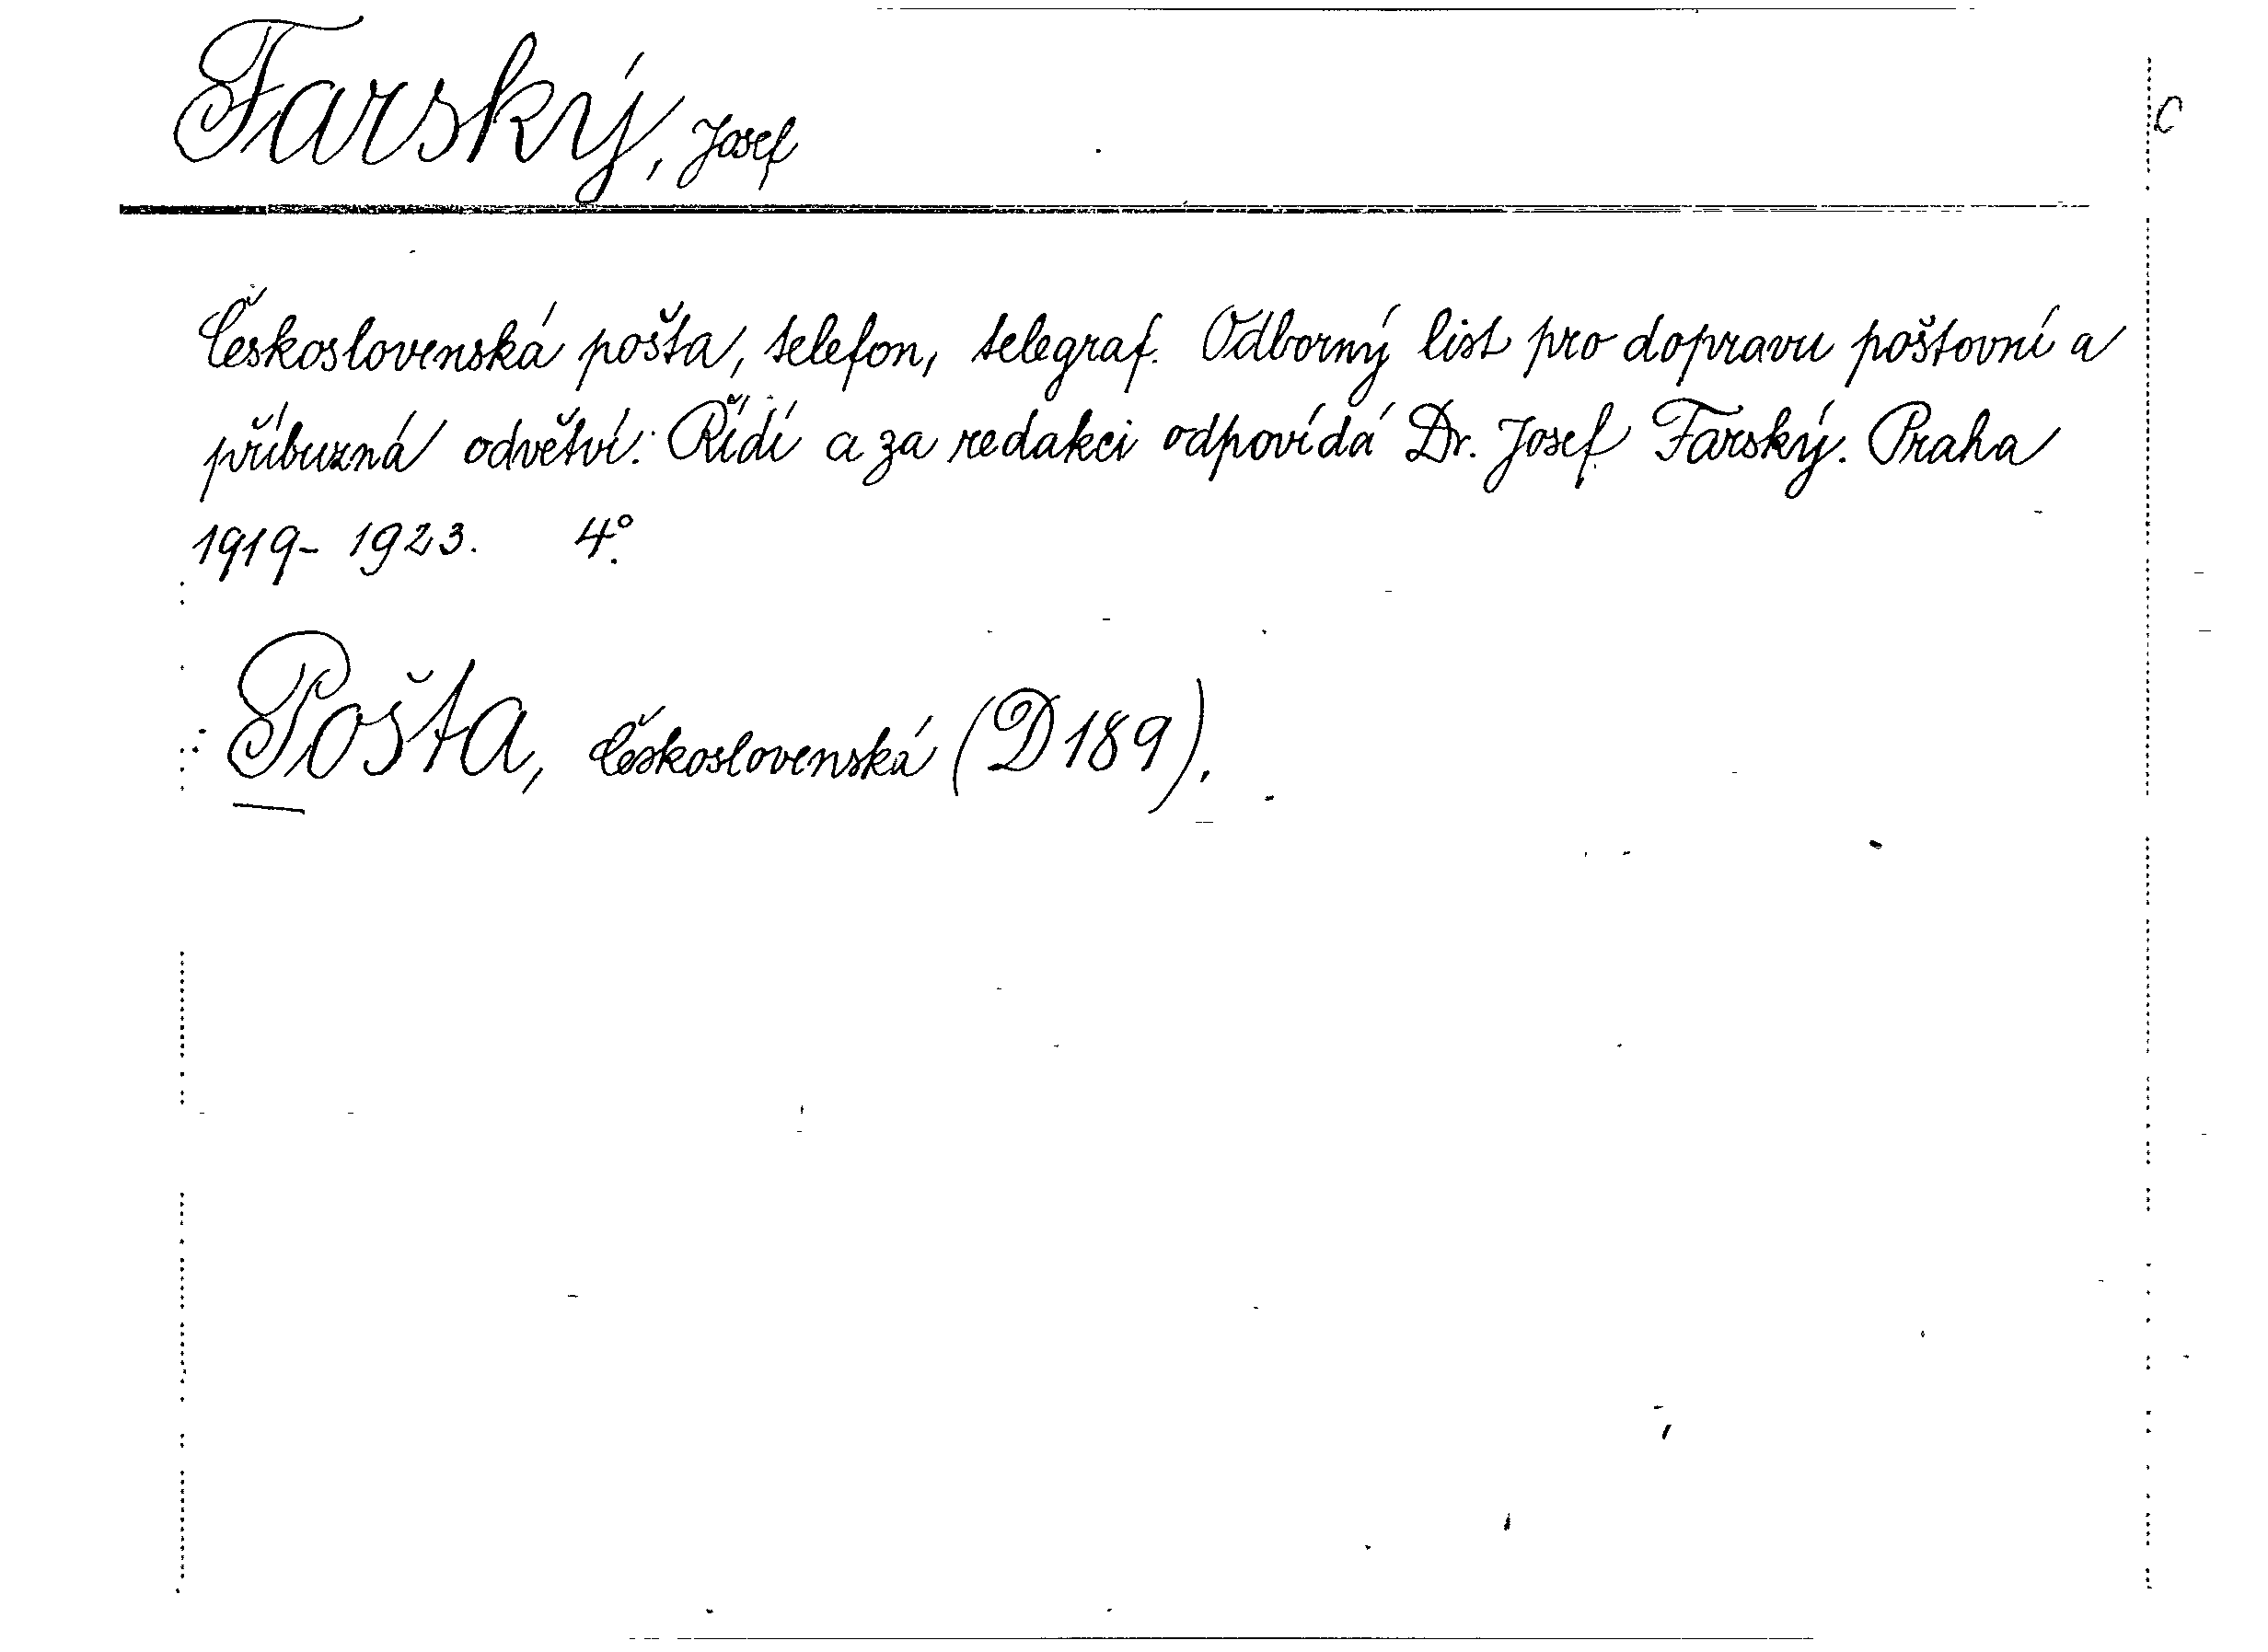 Farský, Josef
C
Československá pošta, telefon, telegraf. Odborný list pro dopravu poštovní a
příbuzná odvětví. Řídí a za redakci odpovídá Dr. Josef Farský. Praha
1919- 1923. 4°.
Pošta, československá (D 189).